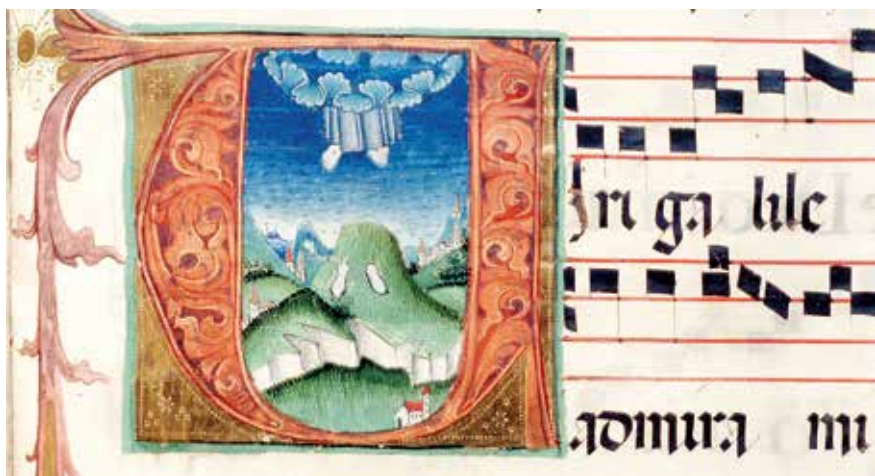 Viri ga lile
admira mi